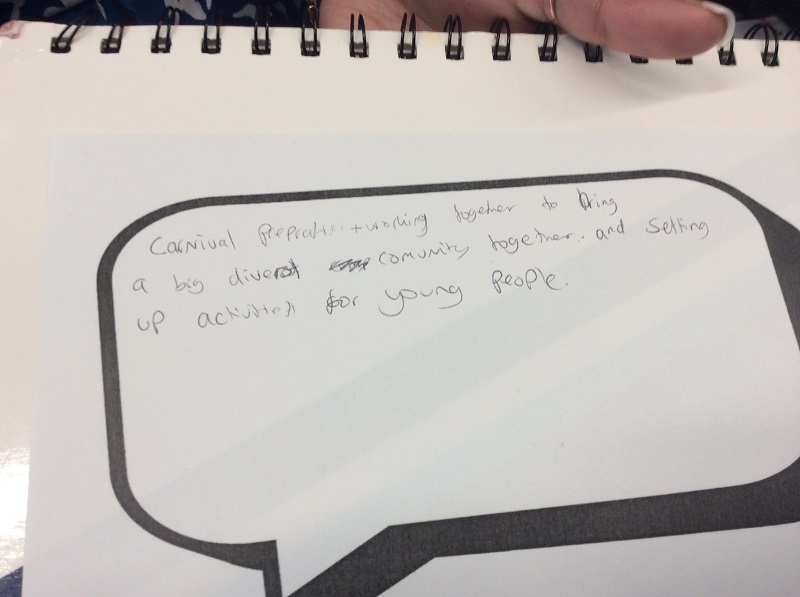 Carnival + working together to bring
a big diverst comunity together. and setting
up activities for young people.